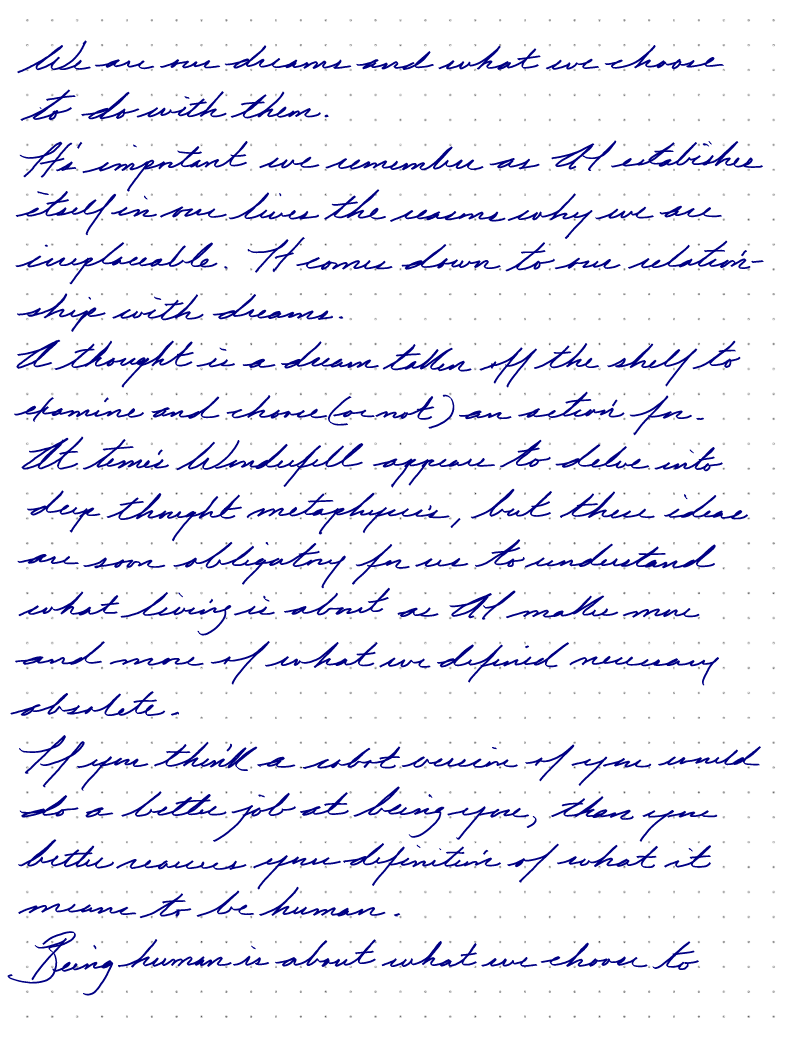 We are our dreams and what we choose
to do with them.
It's important we remember as AI establishes
itself in our lives the reasons why we are
irreplaceable. It comes down to our relation-
ship with dreams.
A thought is a dream taken off the shelf to
examine and choose (or not) an action for.
At times Wonderfell appears to delve into
deep thought metaphysics, but these ideas
are soon obligatory for us to understand
what living is about as AI makes more
and more of what we defined necessary
obsolete.
If you think a robot version of you would
do a better job at being you, then you
better reassess your definition of what it
means to be human.
Being human is about what we choose to